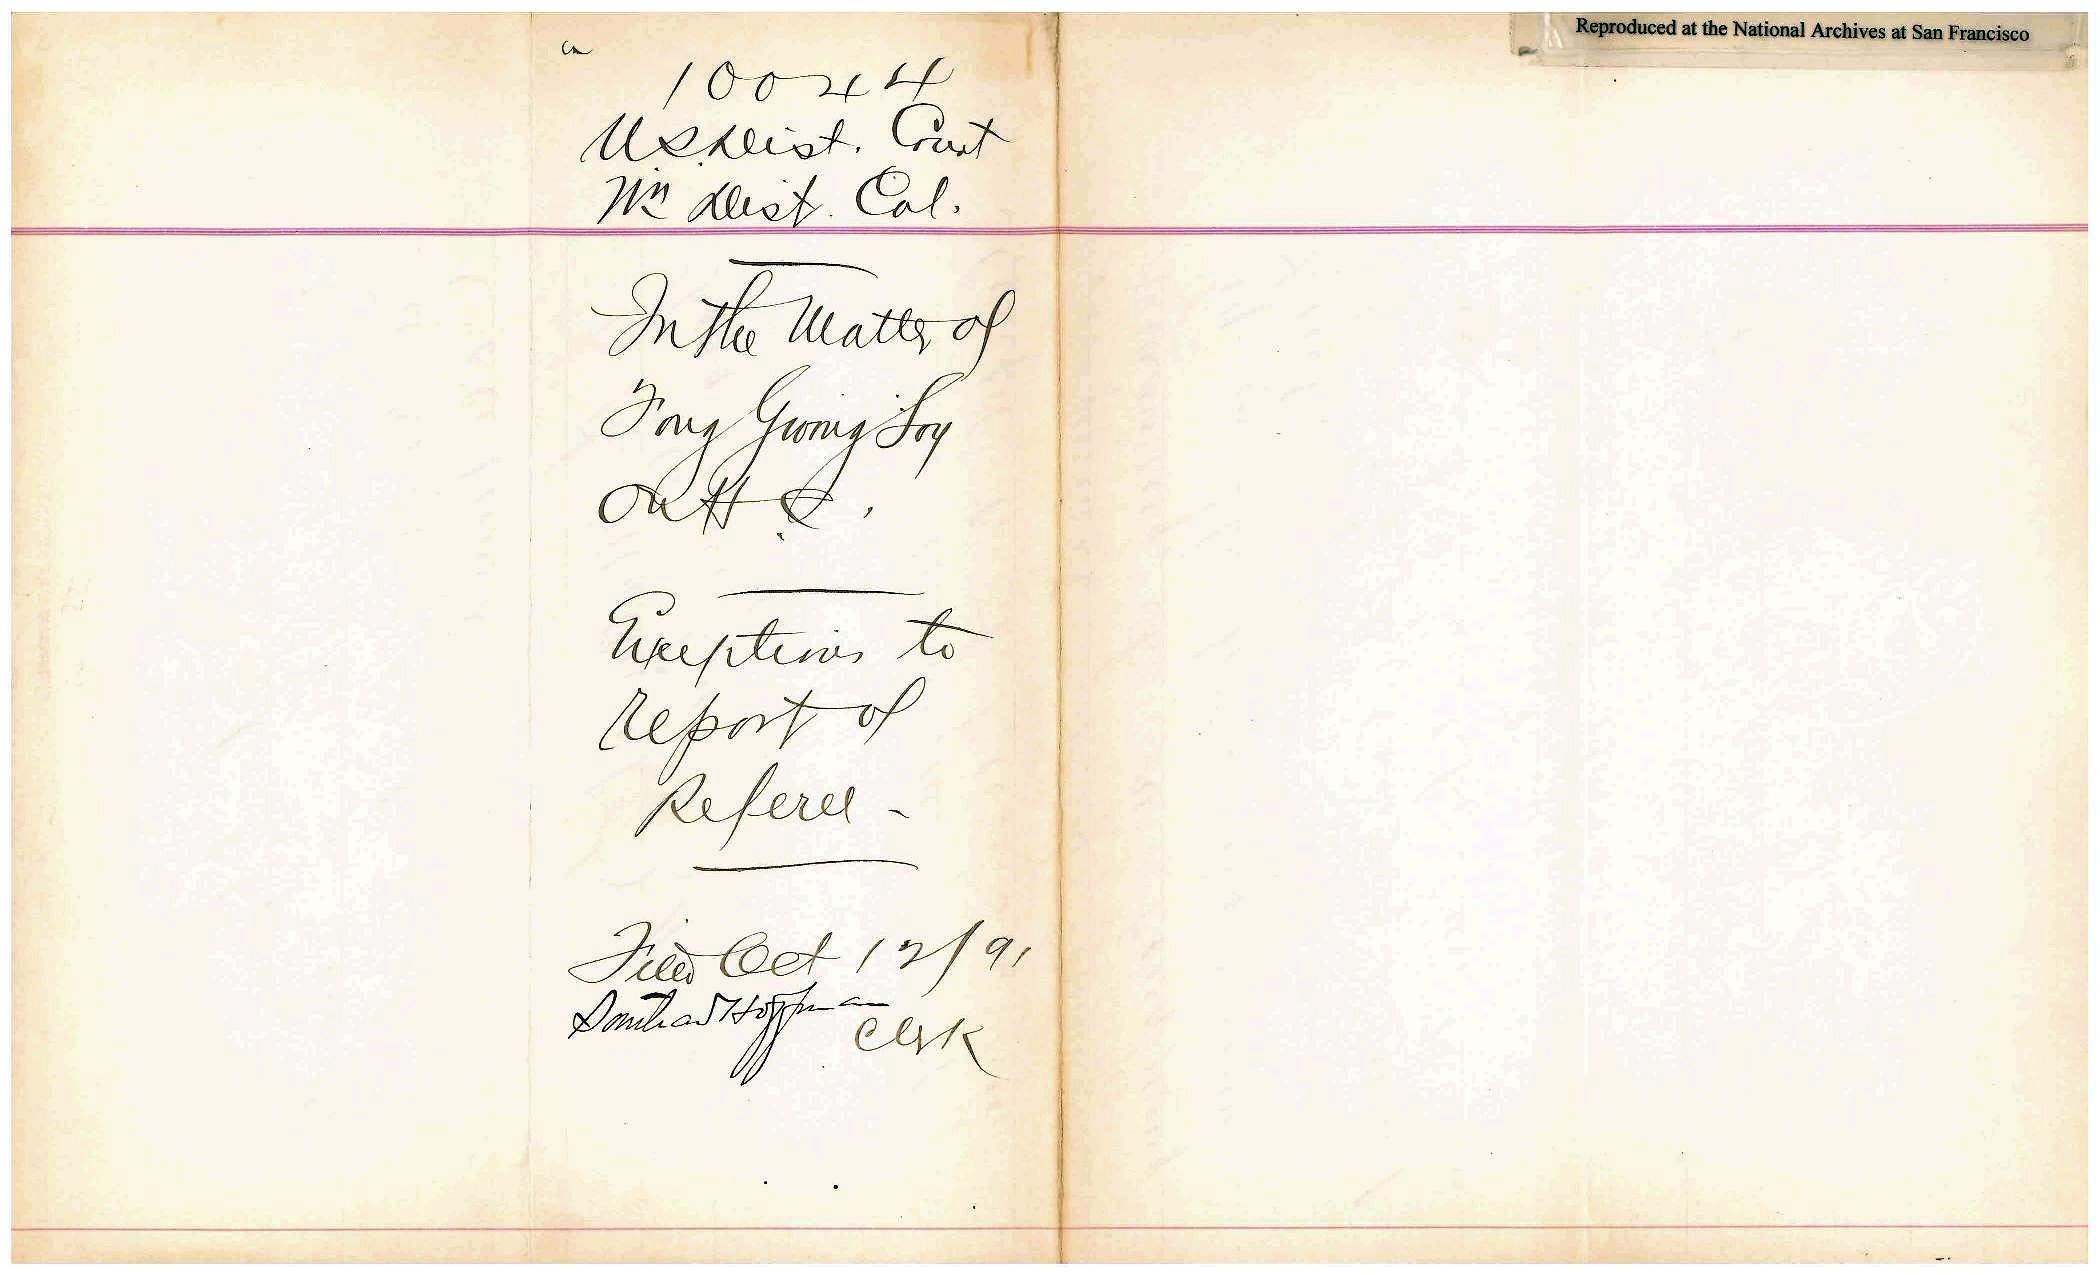 Reproduced at the National Archives at San Francisco
10044
U.S. Dist. Court
Nn Dist. Cal.
In the Matter of
Fong Gwing Foy
On H.C.
Exceptions to
report of
Referee -
Filed Oct 12/91
Southard Hoffman
Clerk